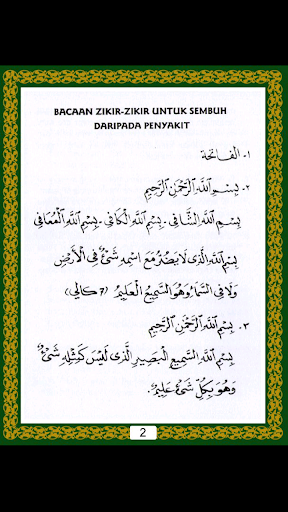 BACAAN ZIKIR-ZIKIR UNTUK SEMBUH
DARIPADA PENYAKIT
١- الفاتحة
٢- بِسْمِ اللَّهِ الرَّحْمَنِ الرَّحِيْمِ
بِسْمِ اللَّهِ الشَّافِي - بِسْمِ اللَّهِ الْكَافِي - بِسْمِ اللَّهِ الْمُعَافِي
بِسْمِ اللَّهِ الَّذِي لَا يَضُرُّ مَعَ اسْمِهِ شَيْءٌ فِي الْأَرْضِ
وَلَا فِي السَّمَاءِ وَهُوَ السَّمِيْعُ الْعَلِيْمُ (7 كالي)
٣- بِسْمِ اللَّهِ الرَّحْمَنِ الرَّحِيْمِ
بِسْمِ اللَّهِ السَّمِيْعِ الْبَصِيْرِ الَّذِي لَيْسَ كَمِثْلِهِ شَيْءٌ
وَهُوَ بِكُلِّ شَيْءٍ عَلِيْمٌ
2